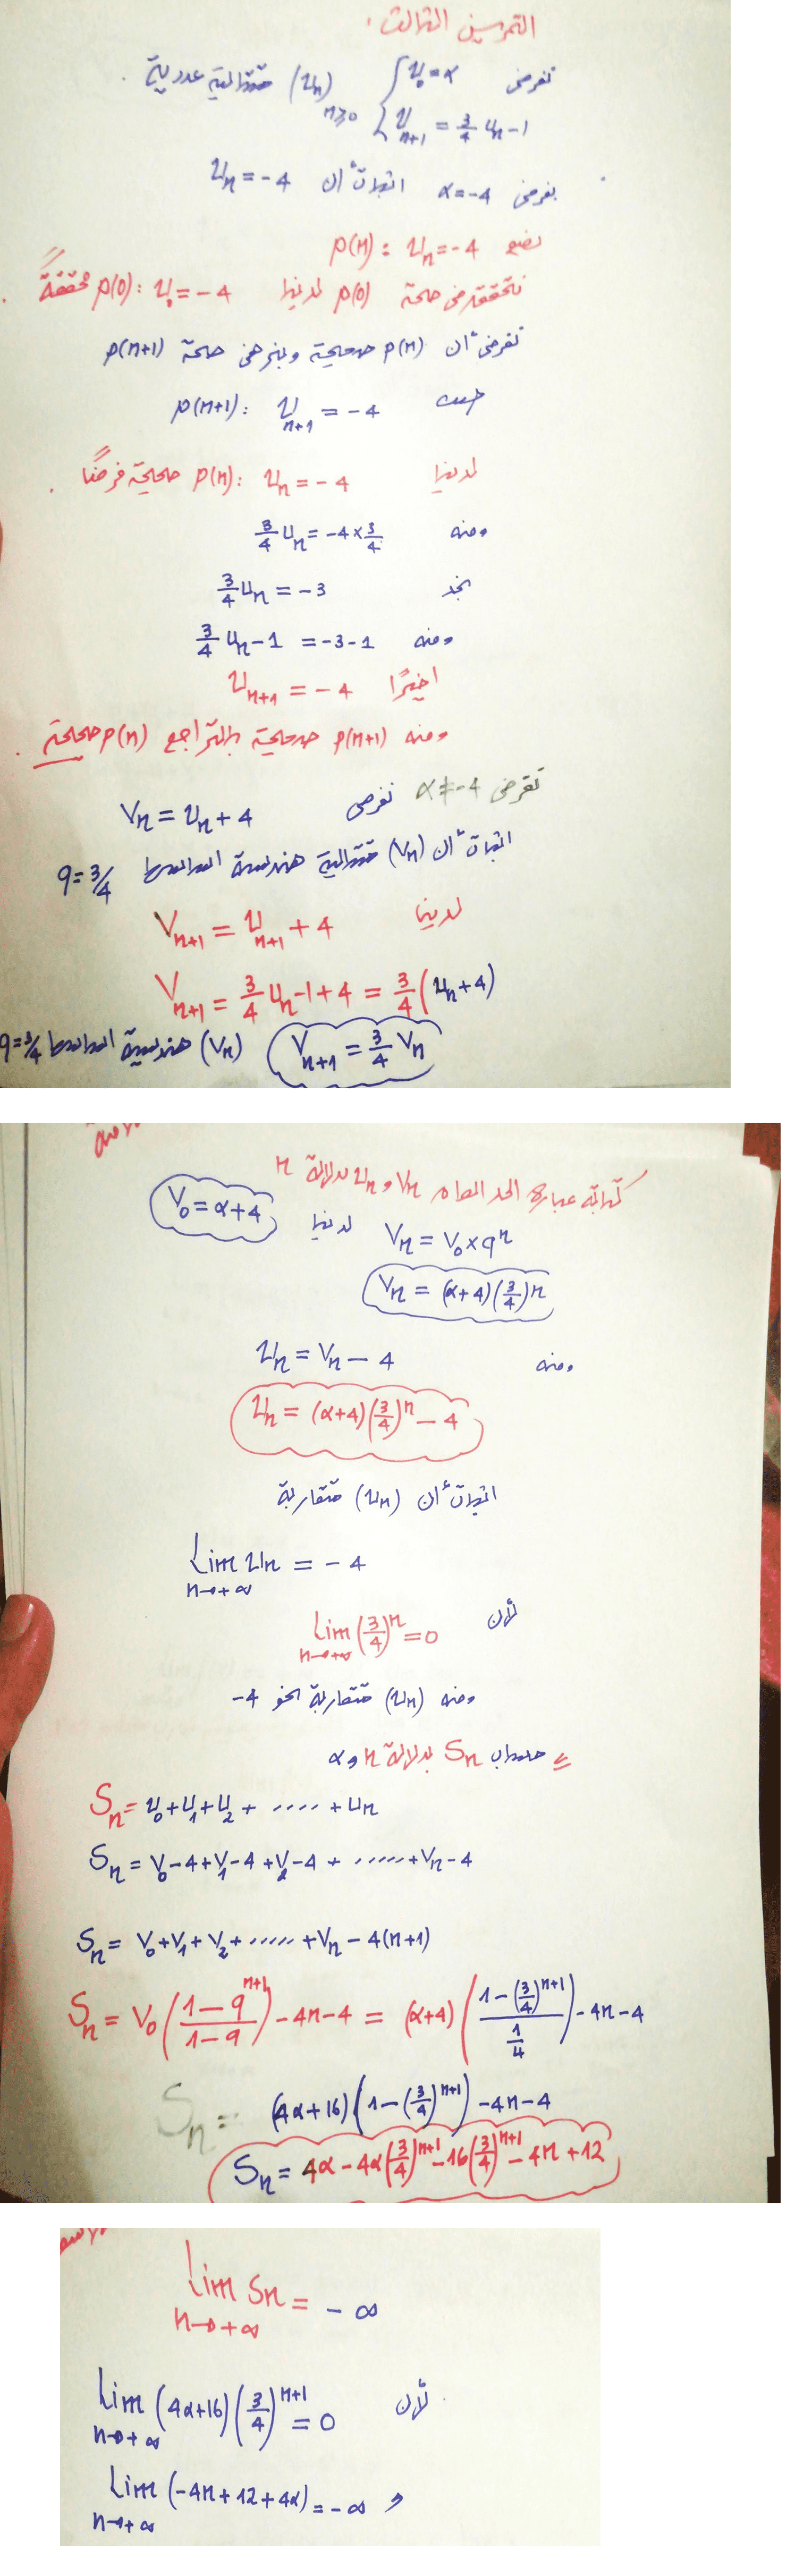 التمرين الثالث:
نفرض { U₀ = α (Uₙ) n≥0 متتالية عددية.
Uₙ₊₁ = 3/4 Uₙ - 1
بفرض α = -4 اثبات أن Uₙ = -4
نضع P(n) : Uₙ = -4
نتحقق من صحة P(0) لدينا P(0) : U₀ = -4 محققة
نفرض أن P(n) صحيحة ونبرهن صحة P(n+1)
حيث P(n+1) : Uₙ₊₁ = -4
لدينا P(n) : Uₙ = -4 صحيحة فرضًا
ومنه 3/4 Uₙ = -4 × 3/4
نجد 3/4 Uₙ = -3
ومنه 3/4 Uₙ - 1 = -3 - 1
اخيرًا Uₙ₊₁ = -4
ومنه P(n+1) صحيحة بالتراجع P(n) صحيحة
نفرض α ≠ -4 نفرض Vₙ = Uₙ + 4
اثبات أن (Vₙ) متتالية هندسية اساسها q = 3/4
لدينا Vₙ₊₁ = Uₙ₊₁ + 4
Vₙ₊₁ = 3/4 Uₙ - 1 + 4 = 3/4 (Uₙ + 4)
Vₙ₊₁ = 3/4 Vₙ (Vₙ) هندسية اساسها q = 3/4
كتابة عبارة الحد العام Vₙ و Uₙ بدلالة n
Vₙ = V₀ × qⁿ لدينا V₀ = α + 4
Vₙ = (α+4)(3/4)ⁿ
ومنه Uₙ = Vₙ - 4
Uₙ = (α+4)(3/4)ⁿ - 4
اثبات أن (Uₙ) متقاربة
Lim Uₙ = -4
n→+∞
لأن Lim (3/4)ⁿ = 0
n→+∞
ومنه (Uₙ) متقاربة نحو -4
حساب Sₙ بدلالة n و α
Sₙ = U₀ + U₁ + U₂ + .... + Uₙ
Sₙ = V₀ - 4 + V₁ - 4 + V₂ - 4 + ..... + Vₙ - 4
Sₙ = V₀ + V₁ + V₂ + ..... + Vₙ - 4(n+1)
Sₙ = V₀ ((1 - qⁿ⁺¹)/(1 - q)) - 4n - 4 = (α+4) ((1 - (3/4)ⁿ⁺¹)/(1/4)) - 4n - 4
Sₙ = (4α+16)(1 - (3/4)ⁿ⁺¹) - 4n - 4
Sₙ = 4α - 4α(3/4)ⁿ⁺¹ - 16(3/4)ⁿ⁺¹ - 4n + 12
Lim Sₙ = -∞
n→+∞
لأن Lim (4α+16)(3/4)ⁿ⁺¹ = 0
n→+∞
و Lim (-4n + 12 + 4α) = -∞
n→+∞